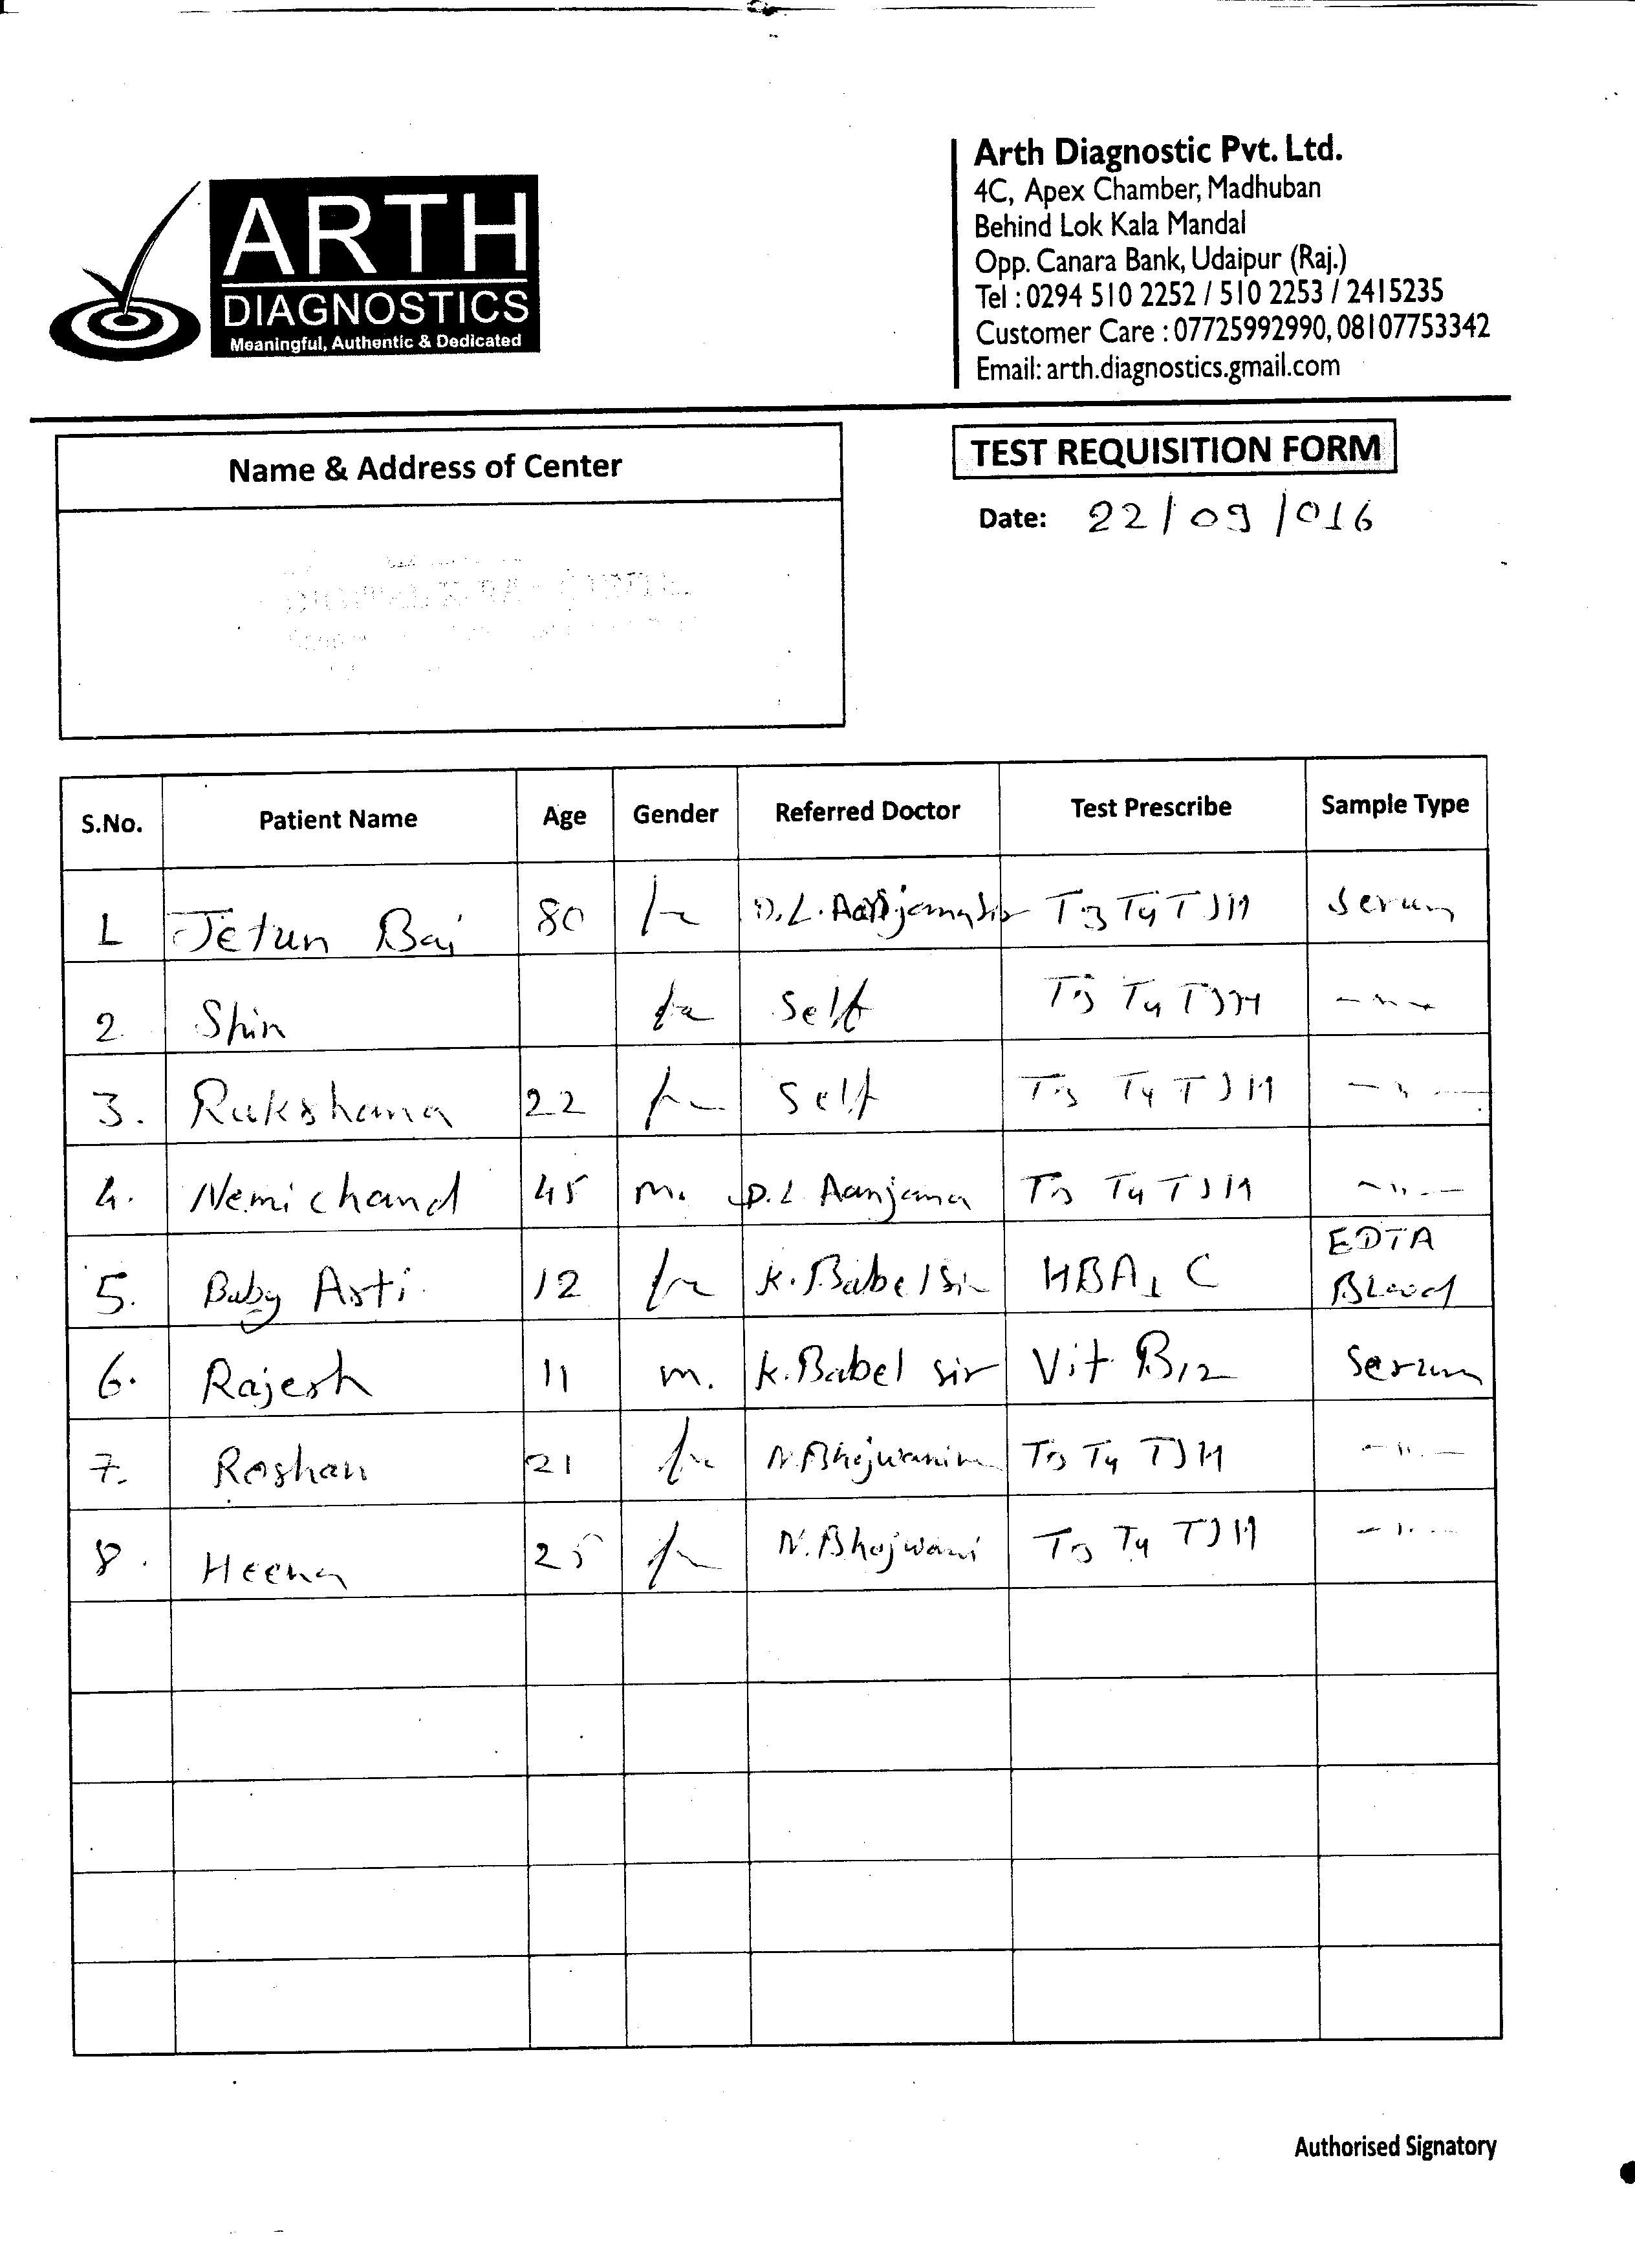 ARTH
DIAGNOSTICS
Meaningful, Authentic & Dedicated
Arth Diagnostic Pvt. Ltd.
4C, Apex Chamber, Madhuban
Behind Lok Kala Mandal
Opp. Canara Bank, Udaipur (Raj.)
Tel : 0294 510 2252 / 510 2253 / 2415235
Customer Care : 07725992990, 08107753342
Email: arth.diagnostics.gmail.com
Name & Address of Center
TEST REQUISITION FORM
Date: 22/09/016
S.No. Patient Name Age Gender Referred Doctor Test Prescribe Sample Type
1 Jetun Bai 80 D.L. T3 T4 TSH Serum
2. Shin Self T3 T4 TSH -"-
3. Rukshana 22 Self T3 T4 TSH -"-
4. Nemichand 45 m. D.L Aanjana T3 T4 TSH -"-
5. Baby Arti 12 K. Babel Sir HBA1C EDTA Blood
6. Rajesh 11 m. K. Babel sir Vit B12 Serum
7. Roshan 21 T3 T4 TSH -"-
8. Heena 25 N. Bhojwani T3 T4 TSH -"-
Authorised Signatory